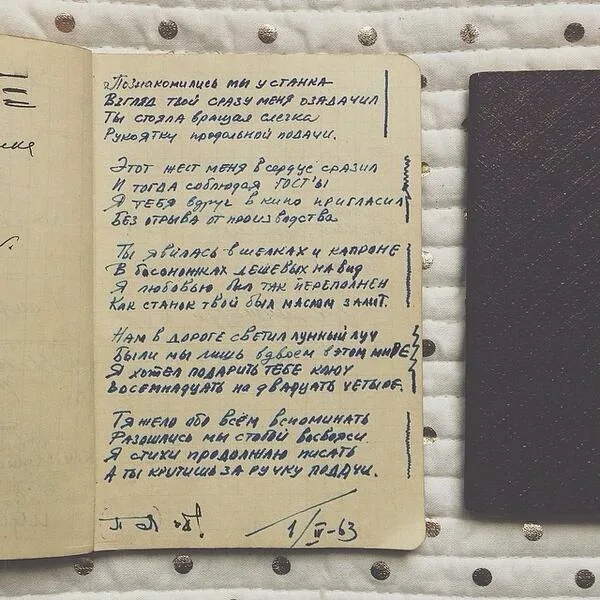 Познакомились мы у станка
Взгляд твой сразу меня озадачил
Ты стояла вращая слегка
Рукоятку продольной подачи.
Этот жест меня в сердце сразил
И тогда соблюдая ГОСТ'ы
Я тебя вдруг в кино пригласил
Без отрыва от производства
Ты явилась в шелках и капроне
В босоножках дешевых на вид
Я любовью был так переполнен
Как станок твой был маслом залит.
Нам в дороге светил лунный луч
Были мы лишь вдвоем в этом мире
Я хотел подарить тебе ключ
Восемнадцать на двадцать четыре.
Тяжело обо всём вспоминать
Разошлись мы с тобой восвояси
Я стихи продолжаю писать
А ты крутишь за ручку подачи.
1/VI-63